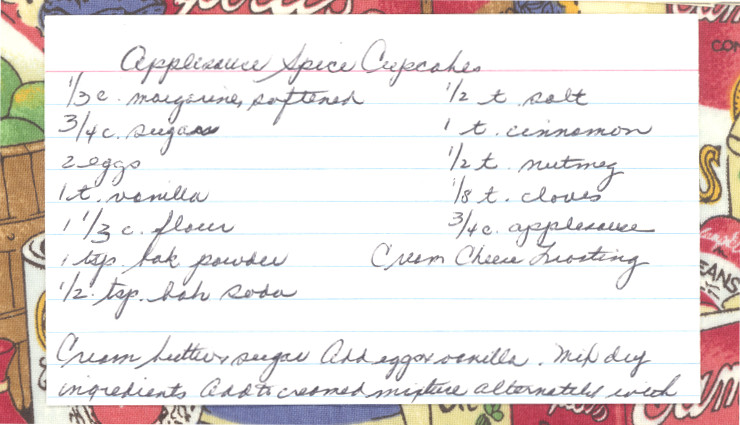 Applesauce Spice Cupcakes
1/3 c. margarine, softened
3/4 c. sugar
2 eggs
1 t. vanilla
1 1/3 c. flour
1 tsp. bak powder
1/2 tsp. bak soda
1/2 t. salt
1 t. cinnamon
1/2 t. nutmeg
1/8 t. cloves
3/4 c. applesauce
Cream Cheese Frosting
Cream butter & sugar Add eggs & vanilla. Mix dry
ingredients Add to creamed mixture alternately with
CON
EANS